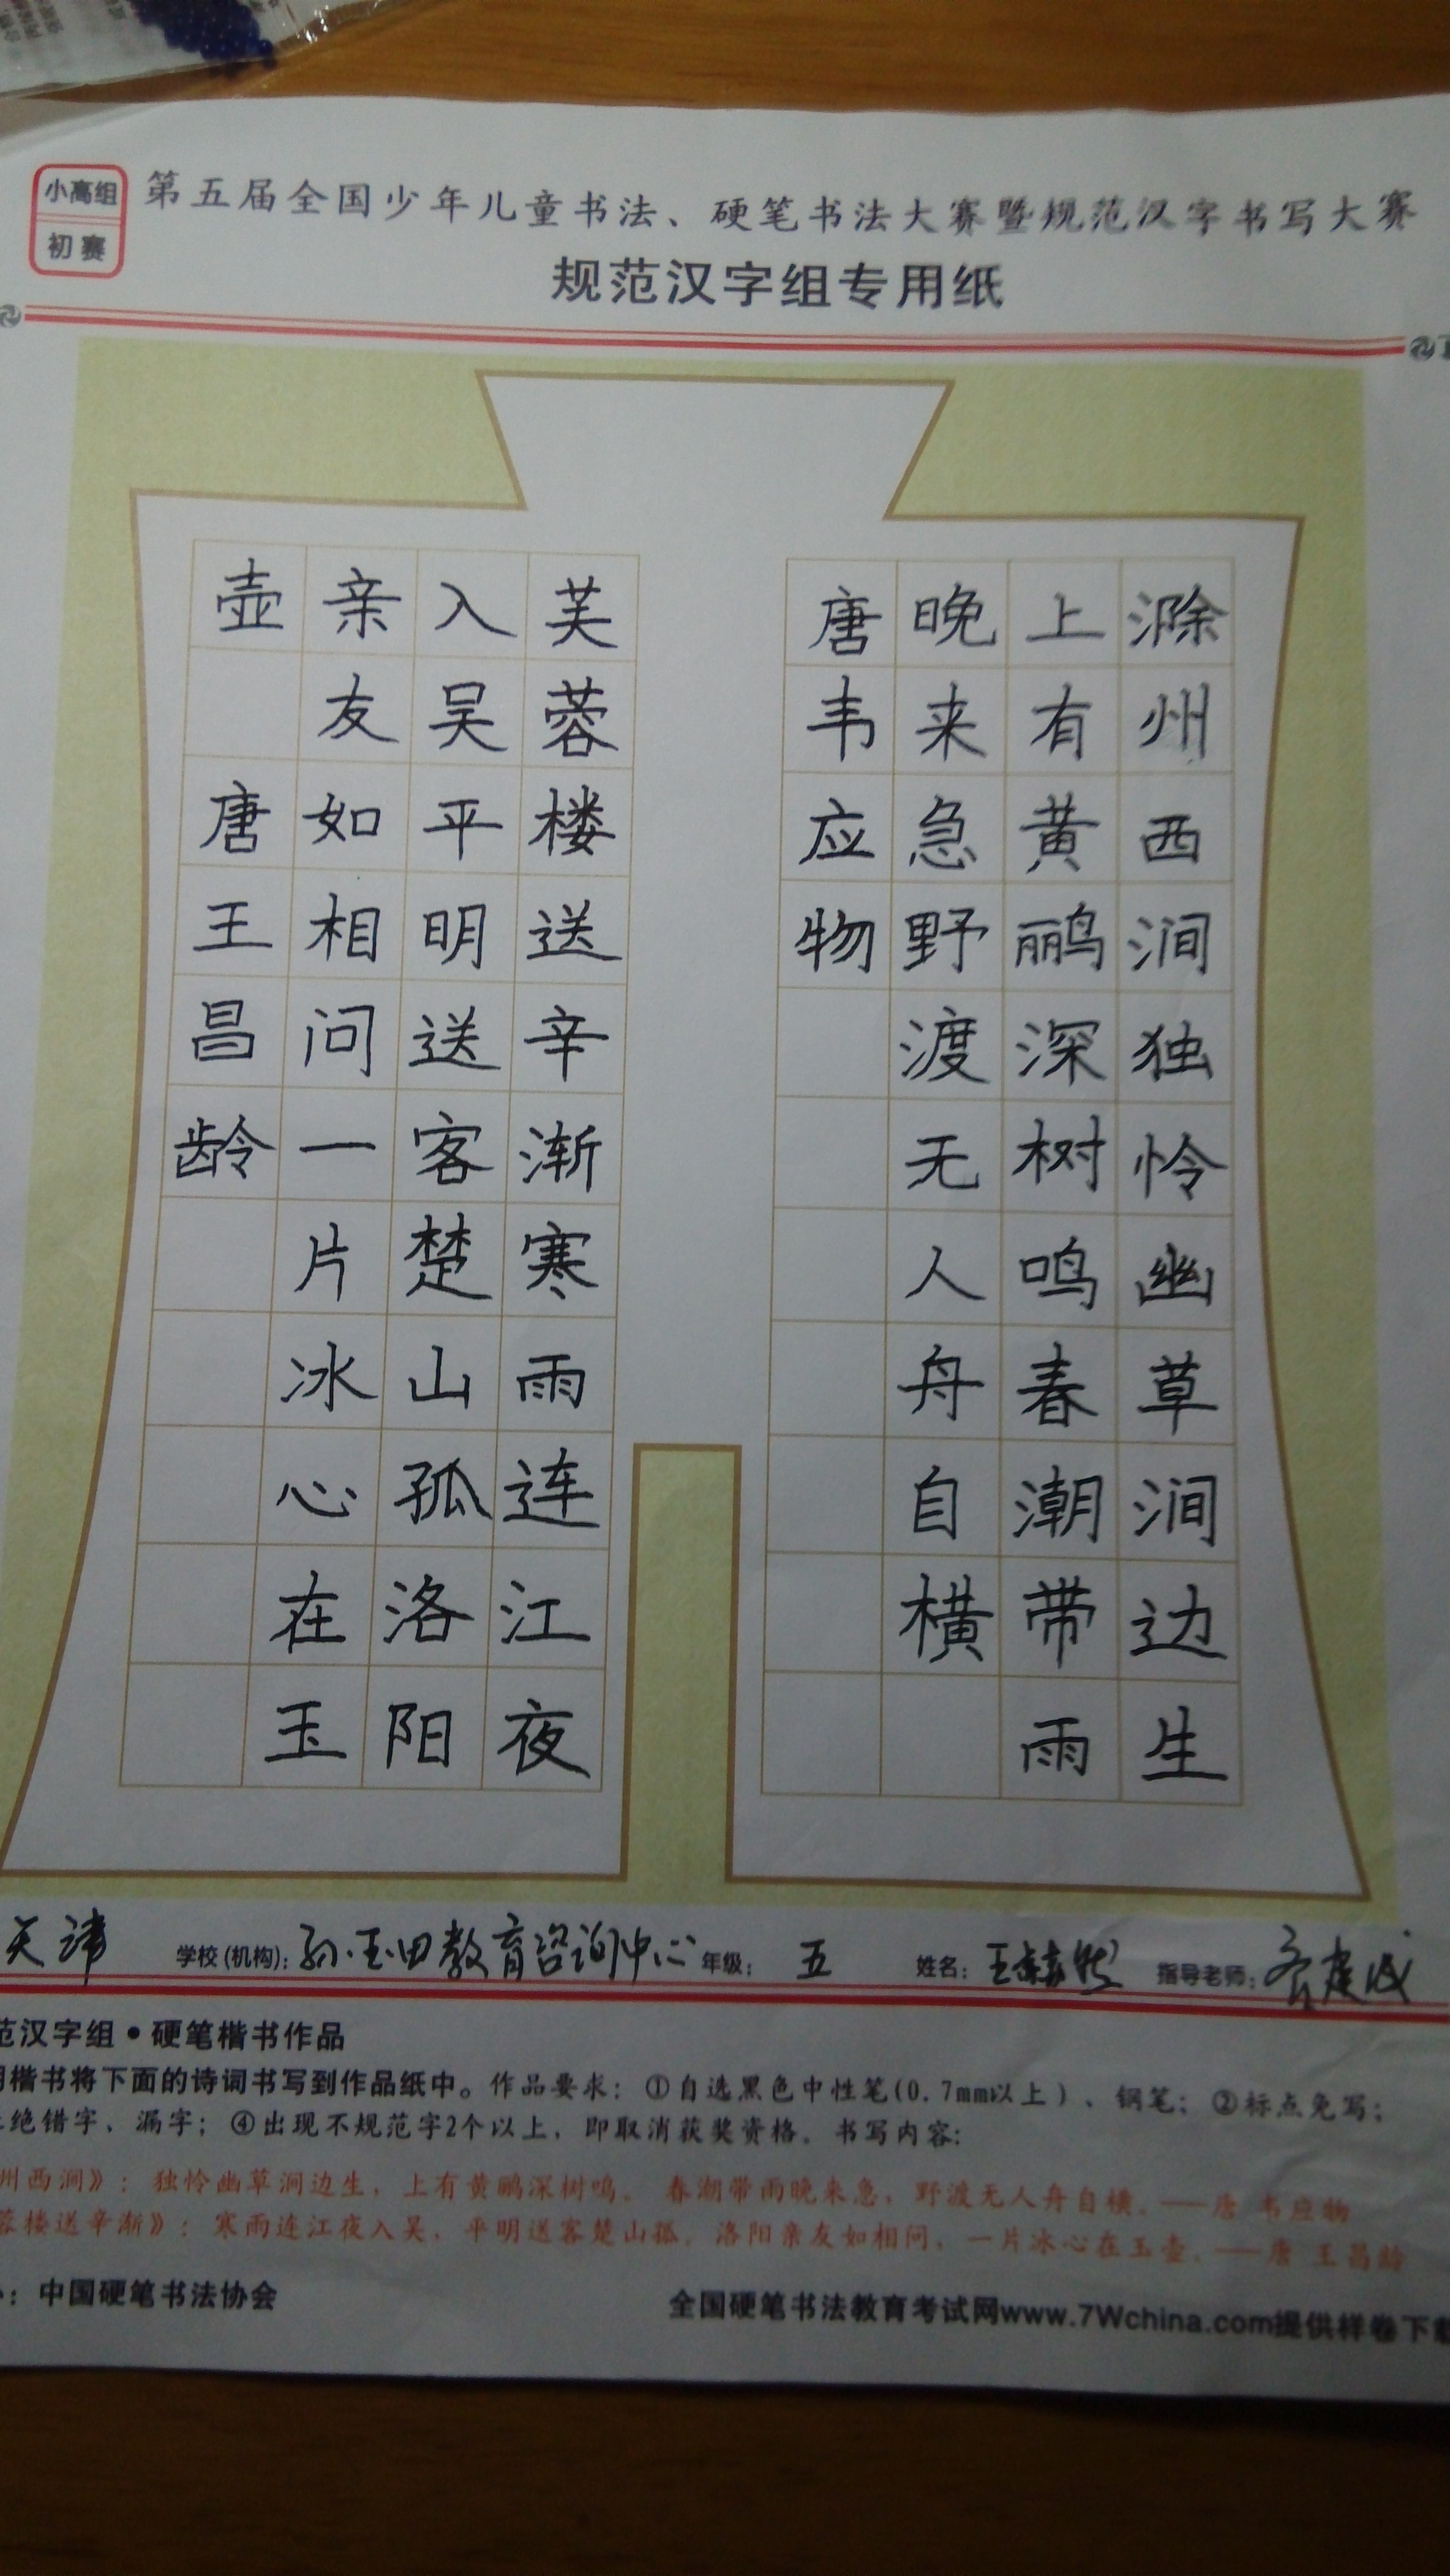 小高组
初赛
第五届全国少年儿童书法、硬笔书法大赛暨规范汉字书写大赛
规范汉字组专用纸
滁州西涧独怜幽草涧边生
上有黄鹂深树鸣春潮带雨
晚来急野渡无人舟自横
唐韦应物
芙蓉楼送辛渐寒雨连江夜
入吴平明送客楚山孤洛阳
亲友如相问一片冰心在玉
壶 唐王昌龄
天津 学校(机构): 孙玉田教育咨询中心 年级: 五 姓名: 王赫然 指导老师:
范汉字组·硬笔楷书作品
用楷书将下面的诗词书写到作品纸中。作品要求：①自选黑色中性笔(0.7mm以上)、钢笔；②标点免写；
绝错字、漏字；④出现不规范字2个以上，即取消获奖资格。书写内容：
州西涧》：独怜幽草涧边生，上有黄鹂深树鸣。春潮带雨晚来急，野渡无人舟自横。——唐 韦应物
蓉楼送辛渐》：寒雨连江夜入吴，平明送客楚山孤。洛阳亲友如相问，一片冰心在玉壶。——唐 王昌龄
：中国硬笔书法协会
全国硬笔书法教育考试网www.7Wchina.com提供样卷下载